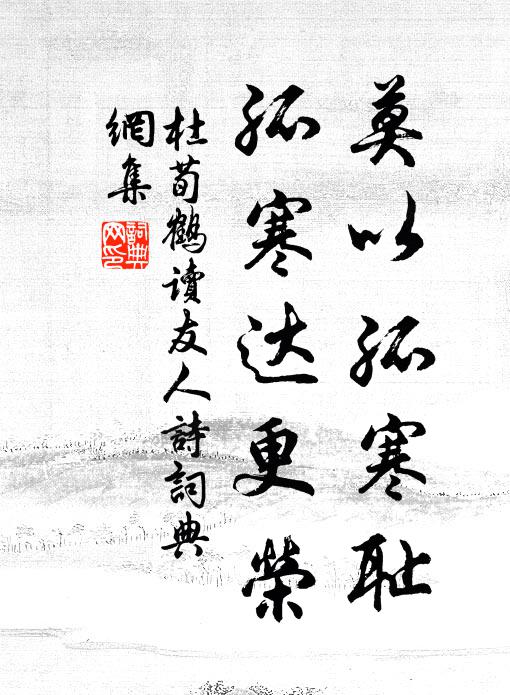 莫以孤寒耻
孤寒达更榮
杜荀鶴讀友人詩詞典
網集
詞典
网印